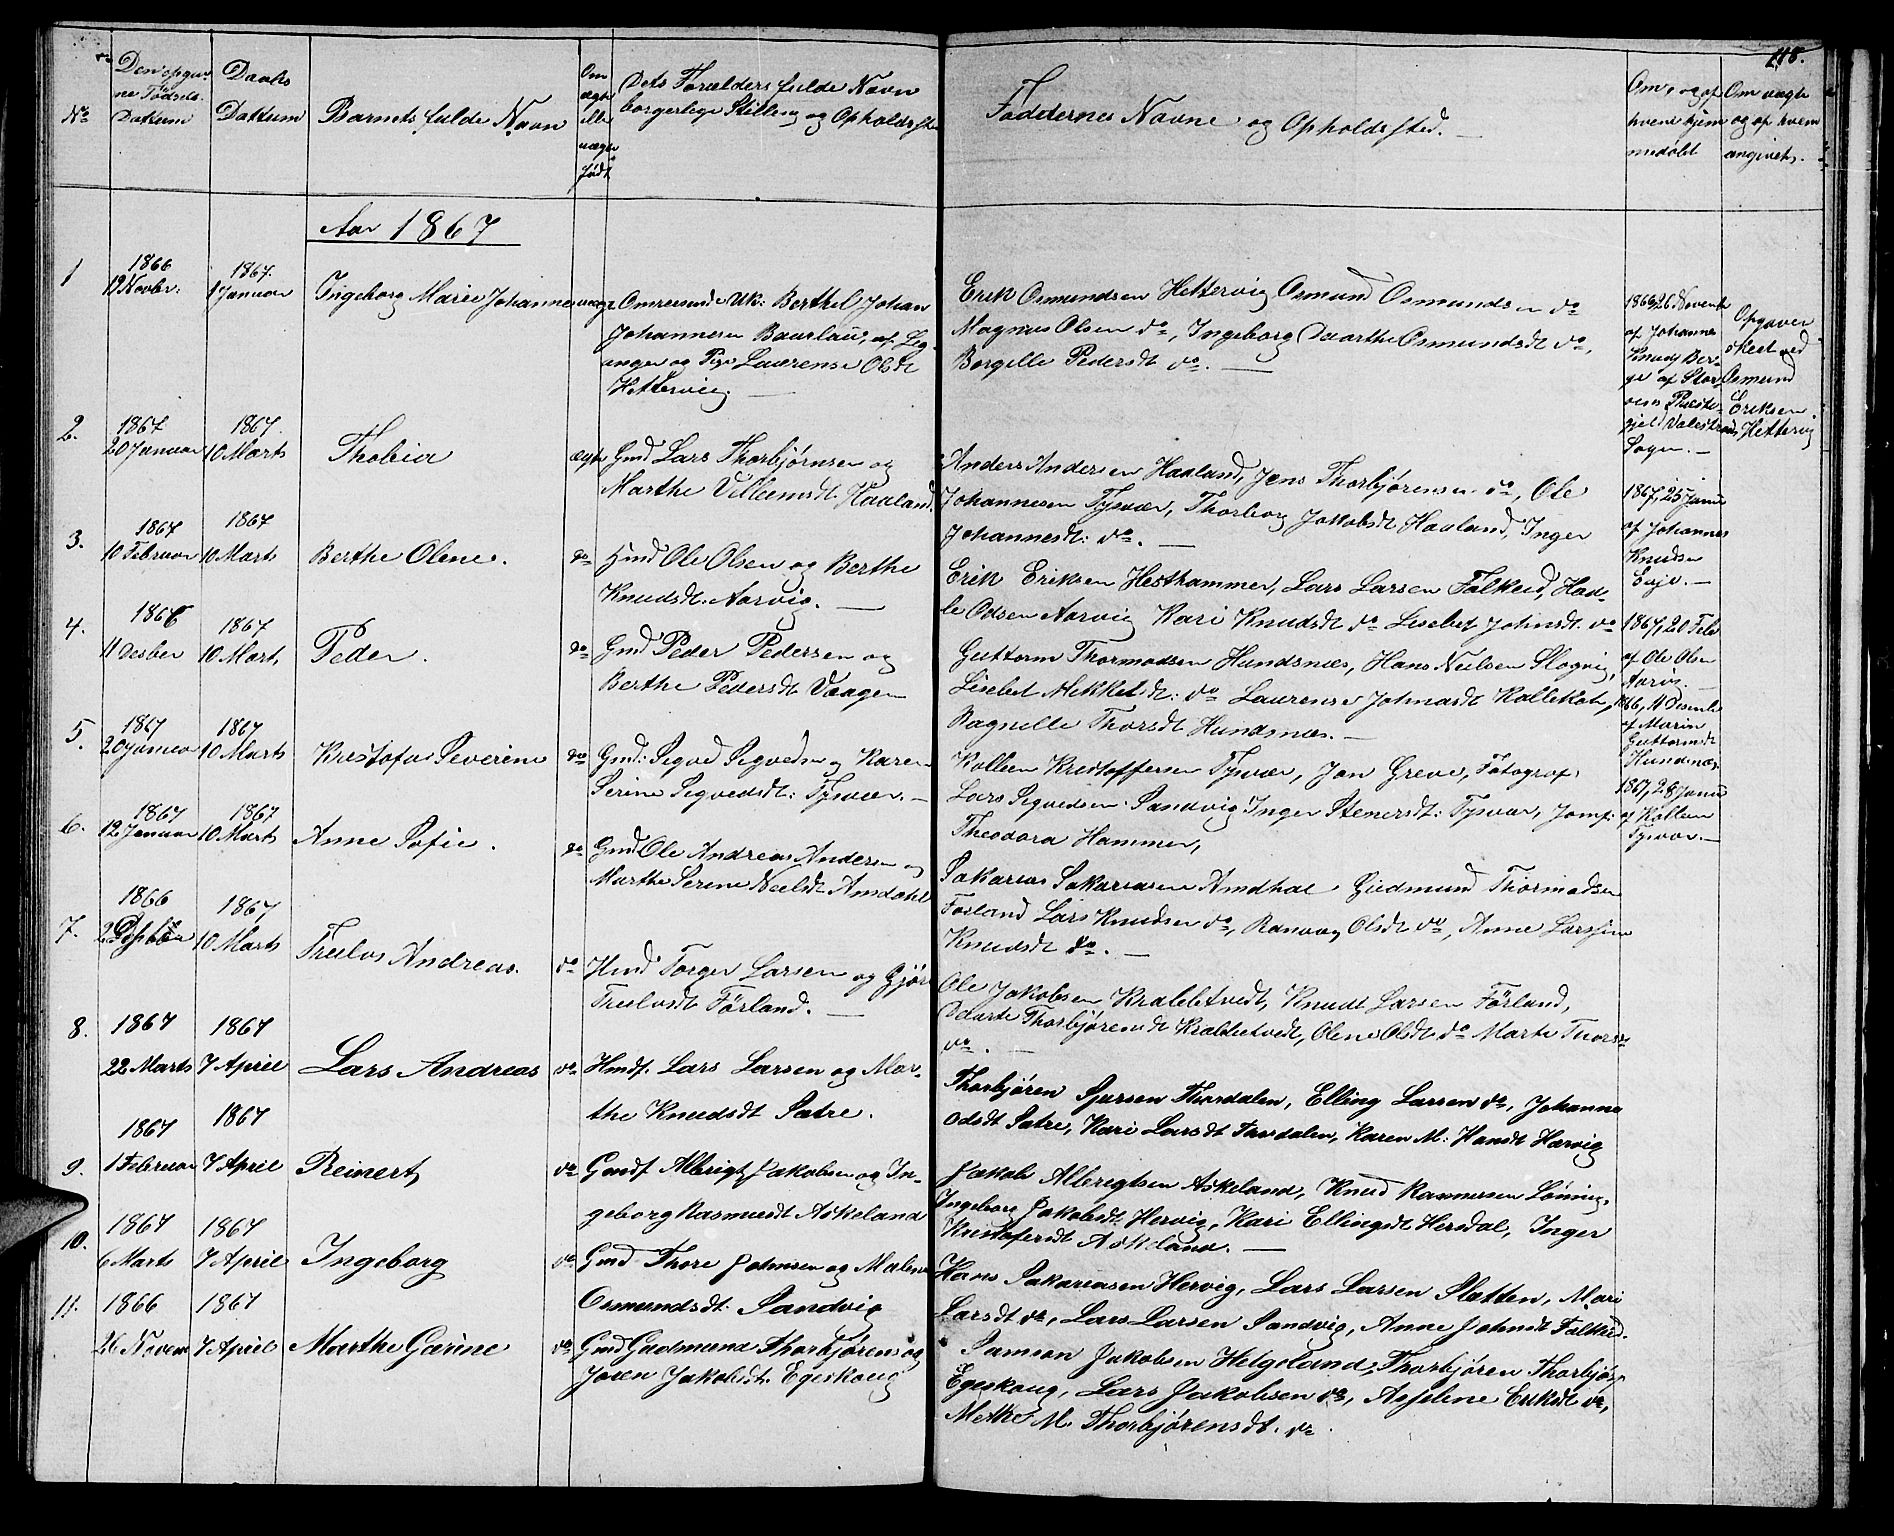 118.
No
Den opgiv
ne Fødsels
Dattum
Daabs
Dattum
Barnets fulde Navn
Om
ægte
elle
uægte
født
Dets Forælders fulde Navn
borgerlige Stilling og Opholdsste
Faddernes Navne og Opholdssted.
Om, og af
hvem hjem
medøbt
Om uægte
og af hvem
angivets.
Aar 1867
1
1866
19 Novbr:
1867.
1 Januar
Ingeborg Marie Johanne
uægte
Omreisende Uk: Berthel Johan
Johannesen Baurlau, af Leg-
anger og Pige Laurense Olsdt
Hettervig
Erik Osmundsen Hettervig Osmund Osmundsen do
Magnus Olsen do, Ingeborg Daarthe Osmundsdt do,
Borgille Pedersdt do.
1866 26 Novemb
af Johanne
Knudsen Ber-
ge af Stor-
øens Præste-
gjeld Valestrands
Sogn.
Opgaven
skeet ved
Osmund
Eriksen
Hettervig
2.
1867
20 Januar
1867.
10 Marts
Thobia
ægte
Gmd Lars Thorbjørnsen og
Marthe Villumsdt Haaland.
Anders Andersen Haaland, Jens Thorbjørensen do, Ole
Johannesen Tysvær, Thorborg Jakobsdt Haaland, Inger
Johannesdt: do.
1867, 25 Janu
af Johannes
Knudsen
Eeje.
3.
1867
10 Februar
1867
10 Marts
Berthe Olene.
do
Hmd Ole Olsen og Berthe
Knudsdt. Aarvig.
Erik Eriksen Hesthammer, Lars Larsen Falkeid, Had-
le Odsen Aarvig Kari Knudsdt do Lisebet Johnsdt do
1867, 20 Feb
af Ole Olsen
Aarvig
4.
1866
11 Desber
1867
10 Mart,
Peder.
do
Gmd Peder Pedersen og
Berthe Pedersdt Vaagen
Guttorm Thormodsen Hundsnæs, Hans Neilsen Slogvig,
Lisebet Mikkelsdt: do Laurense Johnasdt Kallekodt,
Ragnille Thorsdt Hundsnæs.
1866, 11 Desemb
af Marin
Guttormsdt
Hundsnæs
5.
1867
20 Januar
1867
10 Marts
Kristofer Severine
do
Gmd: Segvd Segvedsen og Karen
Serine Segvedsdt: Tysvær.
Kolleen Kristoffersen Tysvær, Jan Greve, Fotograf,
Lars Segvedsen Sandvig Inger Stenersdt: Tysvær, Jomf:
Theodora Hammer,
1867, 28 Janu
af Kolleen
Tysvær.
6.
1867
12 Januar
1867
10 Marts
Anne Sofie.
do
Gmd Ole Andreas Andersen og
Marthe Serine Neelsdt Amdahl
Sakarias Sakariasen Amdhal Gudmund Thormodsen
Førland Lars Knudsen do, Ranvey Olsdt do, Anne Larssine
Knudsdt do.
7.
1866
Desber
1867
10 Marts
Trulos Andreas.
do
Hmd Torger Larsen og Gjør
Trulosdt Førland.
Ole Jakobsen Krabbetvedt, Knudt Larsen Førland,
Daarte Thorbjørensdt Krabbetvedt, Olene Olsdt do Marte Thorsdt
do.
8.
1867
22 Marts
1867
7 April
Lars Andreas
do
Hmdf. Lars Larsen og Mar-
the Knudsdt Sætre.
Thorbjøren Sjursen Thordalen, Elling Larsen do, Johanna
Odsdt Sætre, Kari Larsdt Tordalen, Karen M: Hansdt Hærvig
9.
1867
1 Februar
1867
7 April
Reinert,
do
Gmdf Albrigt Jakobsen og In-
geborg Rasmusdt Askeland
Jakob Albregtsen Askeland, Knud Rasmussen Løning,
Ingeborg Jakobsdt Hervig, Kari Ellingsdt Hersdal, Inger
Kristofersdt Askeland.
10.
1867
6 Marts
1867
7 April
Ingeborg
do
Gmd Thore Johnsen og Malene
Osmundsdt: Sandvig
Hans Sakariasen Hervig, Lars Larsen Slatten, Mari
Larsdt do, Lars Larsen Sandvig, Anne Johnsdt Falkeid.
11.
1866
26 Novem
1867
7 April
Marthe Garine
do
Gmd Gudmund Thorbjørens og
Joren Jakobsdt Egeskoug
Samson Jakobsen Helgeland, Thorbjøren Thorbjørs
Egeskoug, Lars Jakobsen do, Asseline Eriksdt do,
Metke M. Thorbjørensdt. do.